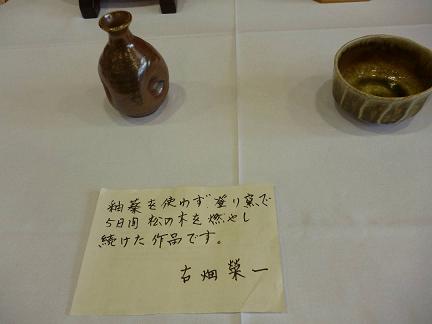 釉薬を使わず登り窯で
5日間松の木を燃やし
続けた作品です。
古畑榮一